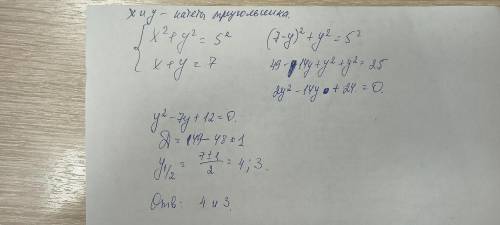 x и y – катеты треугольника.
{ x² + y² = 5²
x + y = 7
(7-y)² + y² = 5²
49 - 14y + y² + y² = 25
2y² - 14y + 24 = 0.
y² - 7y + 12 = 0.
D = 49 - 48 = 1
y½ = 7±1/2 = 4; 3.
Отв: 4 и 3.